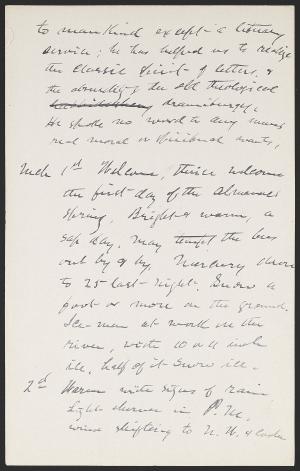 to mankind except a literary
service; he has helped us to realize
the classic spirit of letters, &
the absurdity of the old theological
dramaturgy.
He spoke no word to any mans
real moral or spiritual wants,
Mch 1st Welcome, thrice welcome
the first day of the Almanac
Spring. Bright & warm, a
sap day. May tempt the bees
out by & by. Mercury down
to 25 last night. Snow a
foot or more on the ground.
Ice-men at work on the
river, with 10 or 11 inch
ice, half of it snow ice.
2d Warm with signs of rain
Light shower in P.M.
wind shifting to N.W. & colder